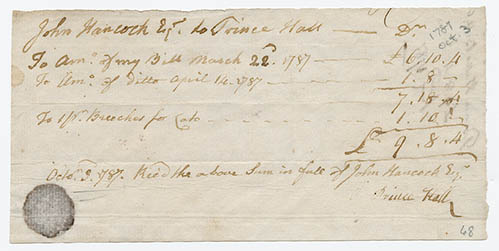 John Hancock Esqr. to Prince Hall — Dr.
1787 Oct. 3
To Amo. of my Bill March 22d. 1787 - - - £6.10.4
To Amo. of Ditto April 14. 1787 - - - 1.8 -
7.18.4
To 1 pr. Breeches for Cato - - - 1.10.
£ 9.8.4
Octo. 3. 1787. Recd. the above Sum in full of John Hancock Esqr.
Prince Hall
68